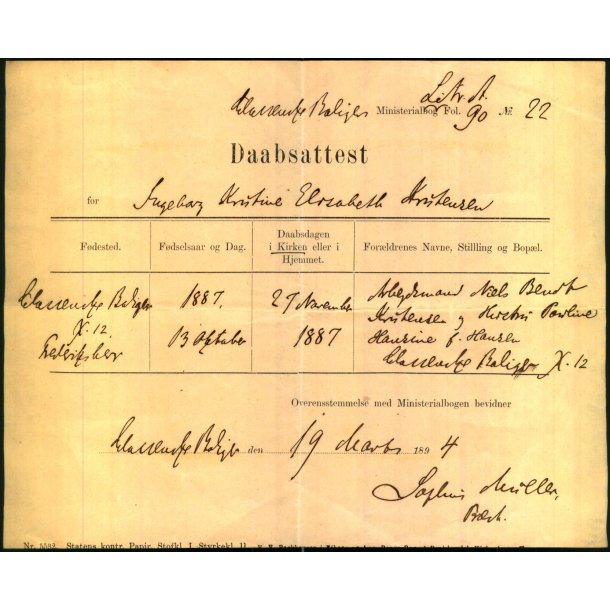 Litr. A.
Classenske Boliger Ministerialbog Fol. 90 № 22
Daabsattest
for Ingeborg Kristine Elisabeth Kristensen
Fødested. Fødselsaar og Dag. Daabsdagen i Kirken eller i Hjemmet. Forældrenes Navne, Stillling og Bopæl.
Classenske Boliger 1887. 27 November Arbejdsmand Niels Bendt
X. 12. Kristensen og Kirstine Pouline
Frederiksberg 13 Oktober 1887 Hansine f. Hansen
Classenske Boliger X. 12
Overensstemmelse med Ministerialbogen bevidner
Classenske Boliger den 19 Marts 1894
Sophus Müller,
Nr. 5532. Statens kontr. Papir. Stofkl. I. Styrkekl. 11.